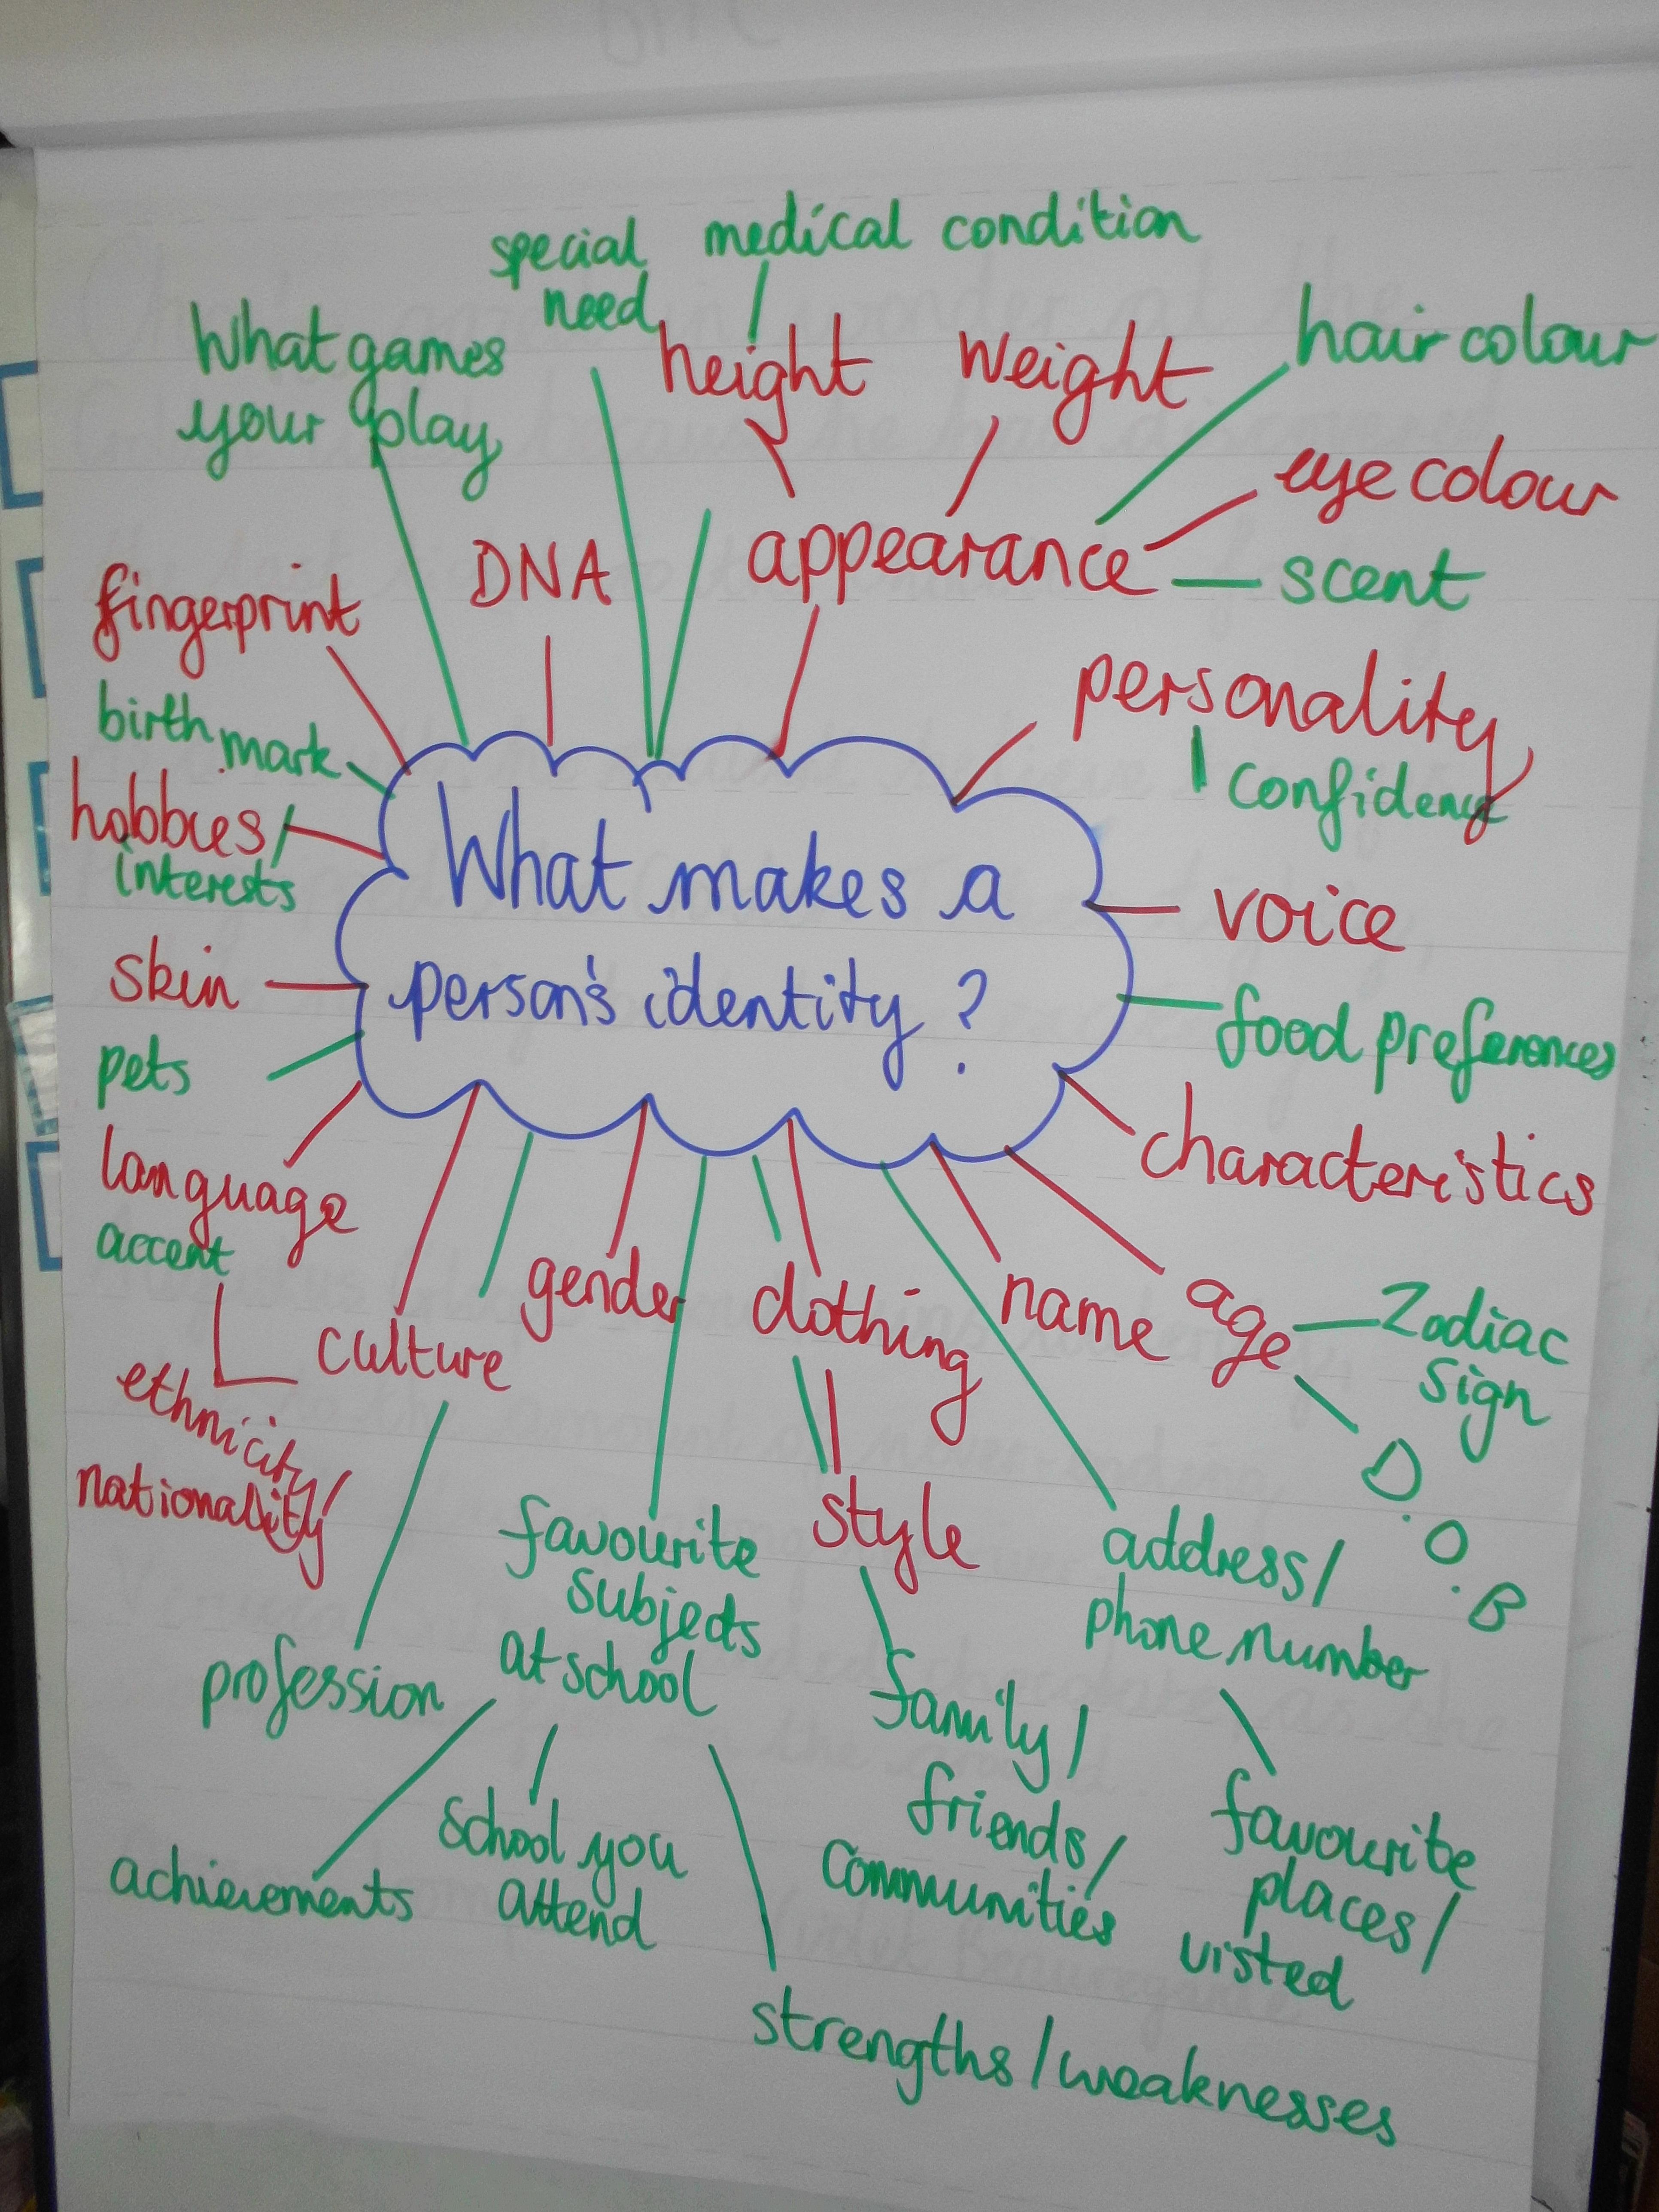 special medical condition
need
What games
your play
height
weight
hair colour
eye colour
DNA
appearance
scent
fingerprint
personality
confidence
birth mark
hobbies/
interests
What makes a
person's identity?
voice
skin
food preferences
pets
characteristics
language
accent
gender
clothing
name
age
Zodiac
sign
D.O.B
culture
ethnicity/
nationality
style
favourite
subjects
at school
address/
phone number
profession
family/
friends/
communities
favourite
places/
visted
achievements
school you
attend
strengths/weaknesses